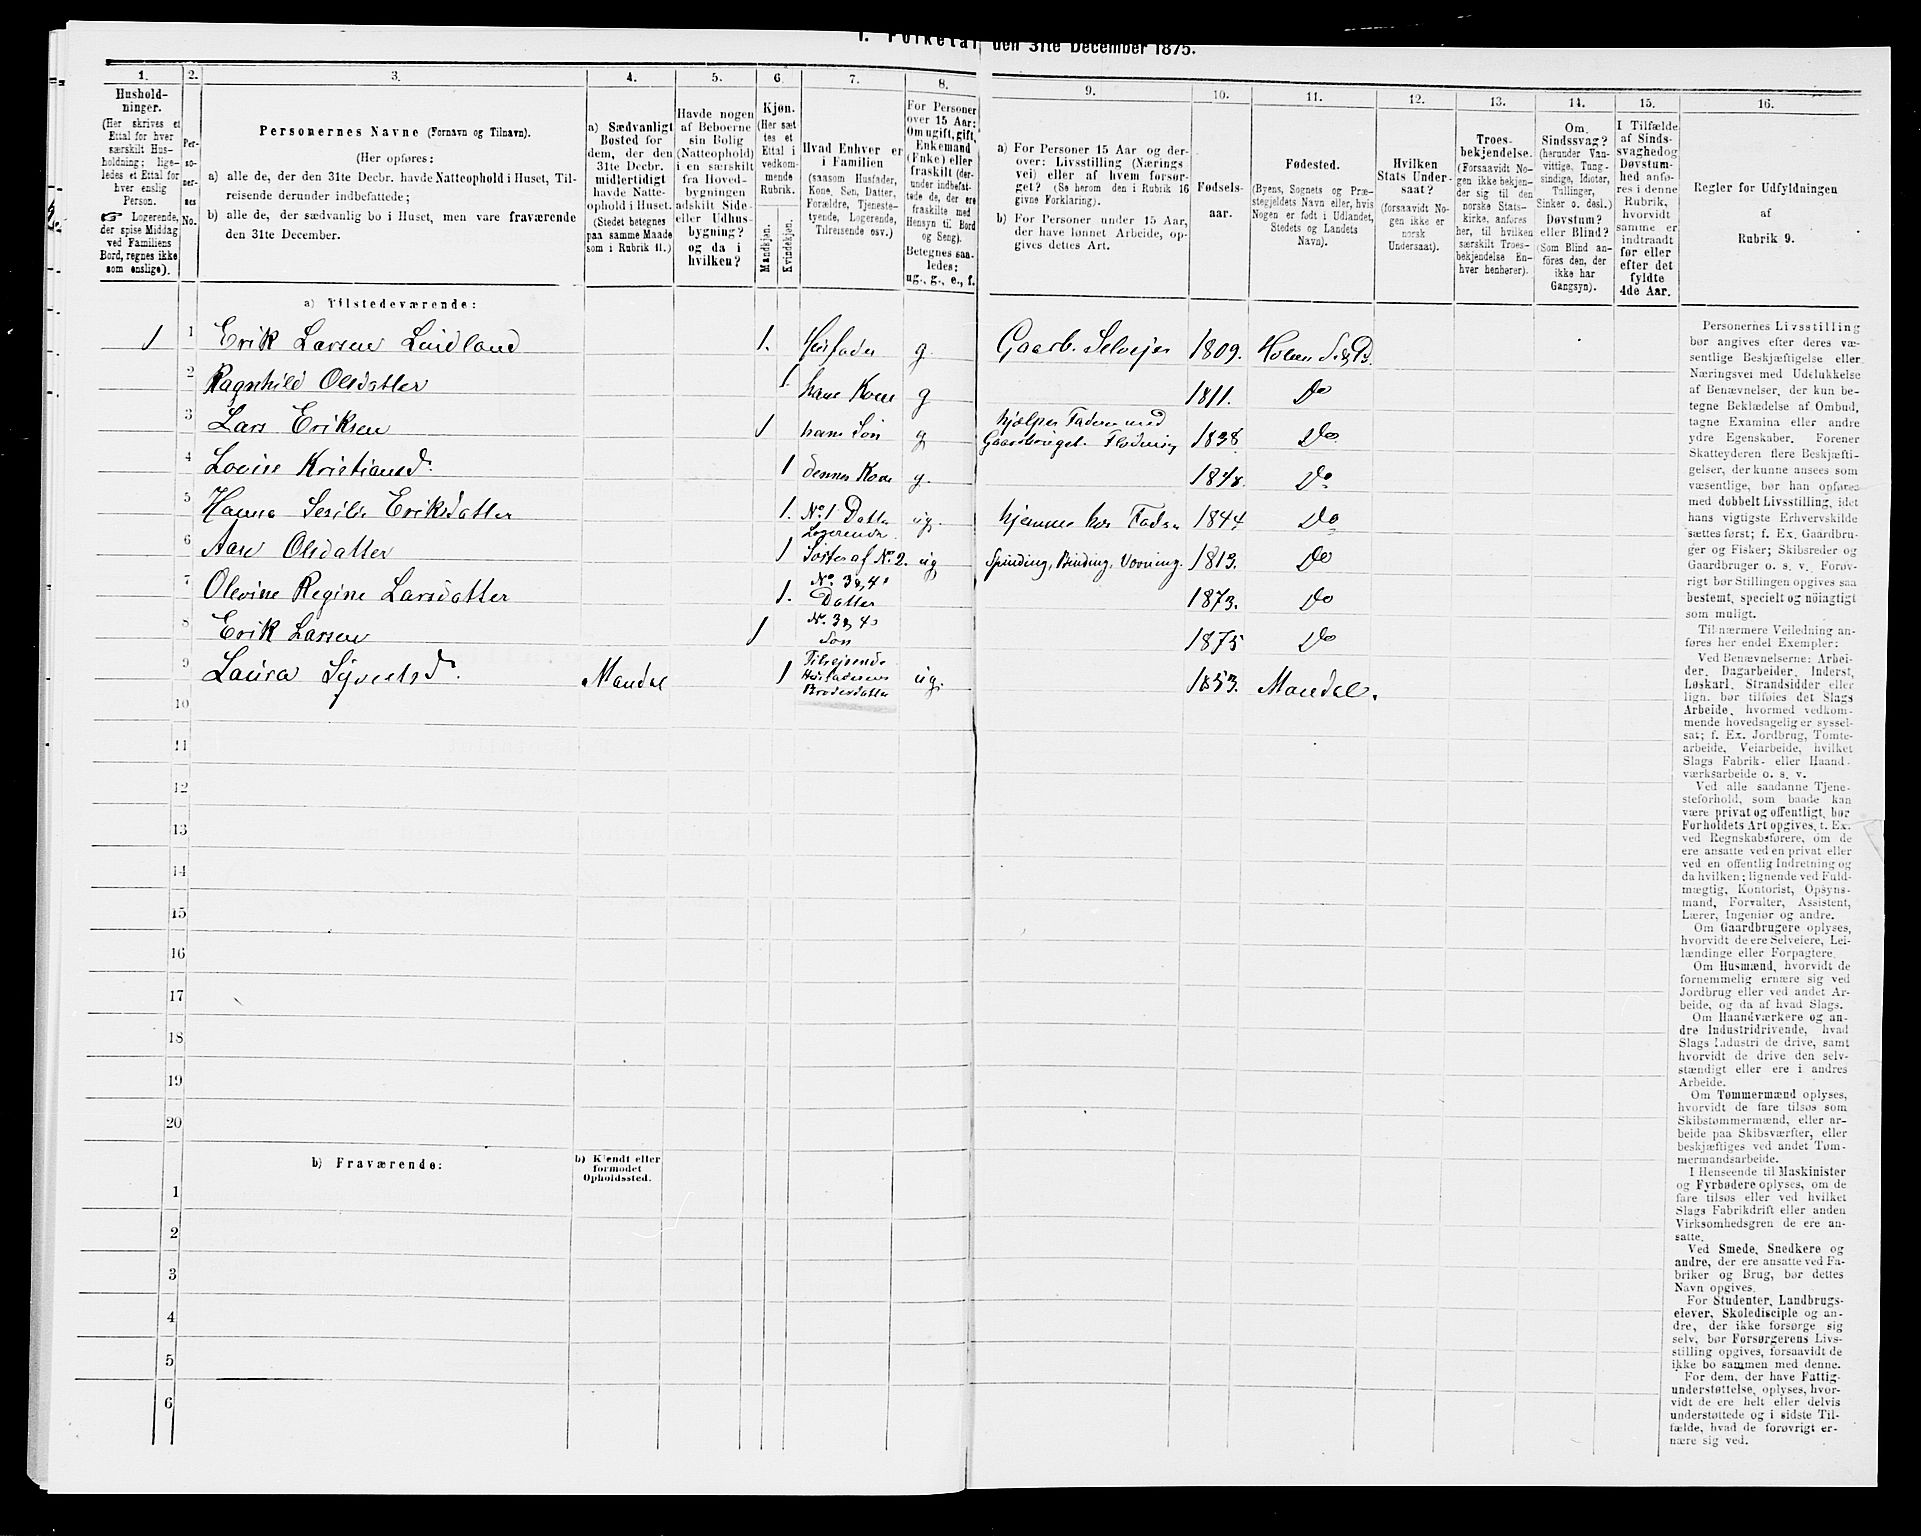 1. Folketal den 31te December 1875.
1. 2. 3. 4. 5. 6. 7. 8. 9. 10. 11. 12. 13. 14. 15. 16.
Hushold-
ninger.
(Her skrives et
Ettal for hver
særskilt Hus-
holdning; lige-
ledes et Ettal for
hver enslig
Person.
☞ Logerende,
der spise Middag
ved Familiens
Bord, regnes ikke
som enslige).
Per-
so-
ner-
nes
No.
Personernes Navne (Fornavn og Tilnavn).
(Her opføres:
a) alle de, der den 31te Decbr. havde Natteophold i Huset, Til-
reisende derunder indbefattede;
b) alle de, der sædvanlig bo i Huset, men vare fraværende
den 31te December.
a) Sædvanligt
Bosted for
dem, der den
31te Decbr.
midlertidigt
havde Natte-
ophold i Huset.
(Stedet betegnes
paa samme Maade
som i Rubrik 11.)
Havde nogen
af Beboerne
sin Bolig
(Natteophold)
i en særskilt
fra Hoved-
bygningen
adskilt Side-
eller Udhus-
bygning?
og da i
hvilken?
Kjøn.
(Her sæt-
tes et
Ettal i
vedkom-
mende
Rubrik.
Mandkjøn.
Kvindekjøn.
Hvad Enhver er
i Familien
(saasom Husfader,
Kone, Søn, Datter,
Forældre, Tjeneste-
tyende, Logerende,
Tilreisende osv.)
For Personer
over 15 Aar:
Om ugift, gift,
Enkemand
(Enke) eller
fraskilt (der-
under indbefat-
tede de, der ere
fraskilte med
Hensyn til Bord
og Seng).
Betegnes saa-
ledes:
ug., g., e., f.
a) For Personer 15 Aar og der-
over: Livsstilling (Nærings-
vei) eller af hvem forsør-
get? (Se herom den i Rubrik 16
givne Forklaring).
b) For Personer under 15 Aar,
der have lønnet Arbeide, op-
gives dettes Art.
Fødsels-
aar.
Fødested.
(Byens, Sognets og Præ-
stegjeldets Navn eller, hvis
Nogen er født i Udlandet,
Stedets og Landets
Navn).
Hvilken
Stats Under-
saat?
(forsaavidt No-
gen ikke er
norsk
Undersaat).
Troes-
bekjendelse.
(Forsaavidt No-
gen ikke bekjen-
der sig til den
norske Stats-
kirke, anføres
her, til hvilken
særskilt Troes-
bekjendelse En-
hver henhører).
Om
Sindssvag?
(herunder Van-
vittige, Tung-
sindige, Idioter,
Tullinger,
Sinker o. desl.)
Døvstum?
eller Blind?
(Som Blind an-
føres den, der
ikke har
Gangsyn).
I Tilfælde
af Sinds-
svaghed og
Døvstum-
hed anfø-
res i denne
Rubrik,
hvorvidt
samme er
indtraadt
før eller
efter det
fyldte
4de Aar.
Regler for Udfyldningen
af
Rubrik 9.
a) Tilstedeværende:
1 1 Erik Larsen Lindland 1. Husfader g. Gaardb. Selvejer 1809. Holum
2 Ragnhild Olsdatter 1 hans Kone g 1811. Do
3 Lars Eriksen 1 hans Søn g hjælper Faderen med
Gaardbruget. Flødning 1838. Do
4 Lovise Kristiansd. 1 dennes Kone g. 1848. Do
5 Hanna Serile Eriksdatter 1. No 1 Datter ug. hjemme hos Faderen 1844 Do
6 Aase Olsdatter 1 Logerende
Søster af No. 2. ug Spinding, Binding, Vævning. 1813. Do
7 Olevine Regine Larsdatter 1. No. 3 & 4s
Datter 1873. Do
8 Erik Larsen 1 No. 3 & 4s
Søn 1875 Do
9 Laura Syvertsd. Mandal 1 Tilrejsende
Husfaderens
Brodersdatter ug. 1853. Mandal.
10
11
12
13
14
15
16
17
18
19
20
b) Fraværende:
b) Kjendt eller
formodet
Opholdssted.
1
2
3
4
5
6
Personernes Livsstilling
bør angives efter deres væ-
sentlige Beskjæftigelse eller
Næringsvei med Udelukkelse
af Benævnelser, der kun be-
tegne Beklædelse af Ombud,
tagne Examina eller andre
ydre Egenskaber. Forener
Skatteyderen flere Beskjæfti-
gelser, der kunne ansees som
væsentlige, bør han opføres
med dobbelt Livsstilling, idet
hans vigtigste Erhvervskilde
sættes først; f. Ex. Gaardbru-
ger og Fisker; Skibsreder og
Gaardbruger o. s. v. Forøv-
rigt bør Stillingen opgives saa
bestemt, specielt og nöiagtigt
som muligt.
Til nærmere Veiledning an-
føres her endel Exempler:
Ved Benævnelserne: Arbei-
der, Dagarbeider, Inderst,
Løskarl, Strandsidder eller
lign. bør tilføies det Slags
Arbeide, hvormed vedkom-
mende hovedsagelig er syssel-
sat; f. Ex. Jordbrug, Tomte-
arbeide, Veiarbeide, hvilket
Slags Fabrik- eller Haand-
værksarbeide o. s. v.
Ved alle saadanne Tjene-
steforhold, som baade kan
være privat og offentligt, bør
Forholdets Art opgives, t. Ex.
ved Regnskabsførere, om de
ere ansatte ved en privat eller
ved en offentlig Indretning og
da hvilken; lignende ved Fuld-
mægtig, Kontorist, Opsyns-
mand, Forvalter, Assistent,
Lærer, Ingeniør og andre.
Om Gaardbrugere oplyses,
hvorvidt de ere Selveiere, Lei-
lændinge eller Forpagtere.
Om Husmænd, hvorvidt de
fornemmelig ernære sig ved
Jordbrug eller ved andet Ar-
beide, og da af hvad Slags.
Om Haandværkere og an-
dre Industridrivende, hvad
Slags Industri de drive, samt
hvorvidt de drive den selv-
stændigt eller ere i andres
Arbeide.
Om Tømmermænd oplyses,
hvorvidt de fare tilsøs som
Skibstømmermænd, eller ar-
beide paa Skibsværfter, eller
beskjæftiges ved andet Tøm-
mermandsarbeide.
I Henseende til Maskinister
og Fyrbødere oplyses, om de
fare tilsøs eller ved hvilket
Slags Fabrikdrift eller anden
Virksomhedsgren de ere an-
satte.
Ved Smede, Snedkere og
andre, der ere ansatte ved Fa-
briker og Brug, bør dettes
Navn opgives.
For Studenter, Landbrugs-
elever, Skoledisciple og an-
dre, der ikke forsørge sig
selv, bør Forsørgerens Livs-
stilling opgives, forsaavidt de
ikke bo sammen med denne.
For dem, der have Fattig-
understøttelse, oplyses, hvor-
vidt de ere helt eller delvis
understøttede og i sidste Til-
fælde, hvad de forøvrigt er-
nære sig ved.